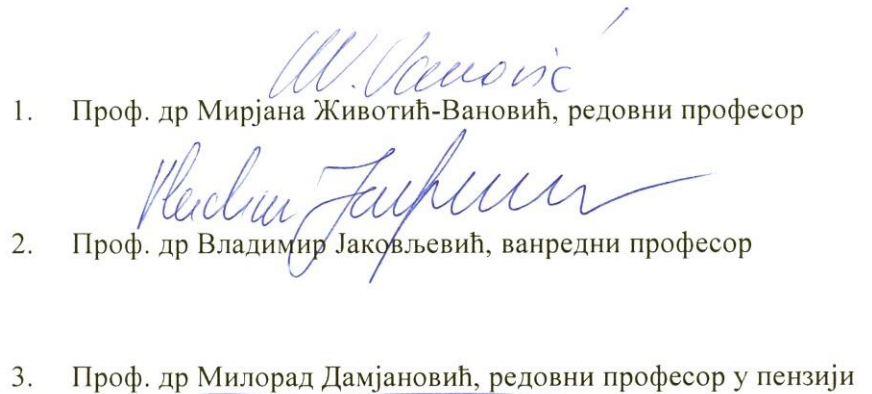 M. Vanović
1. Проф. др Мирјана Животић-Вановић, редовни професор
2. Проф. др Владимир Јаковљевић, ванредни професор
3. Проф. др Милорад Дамјановић, редовни професор у пензији